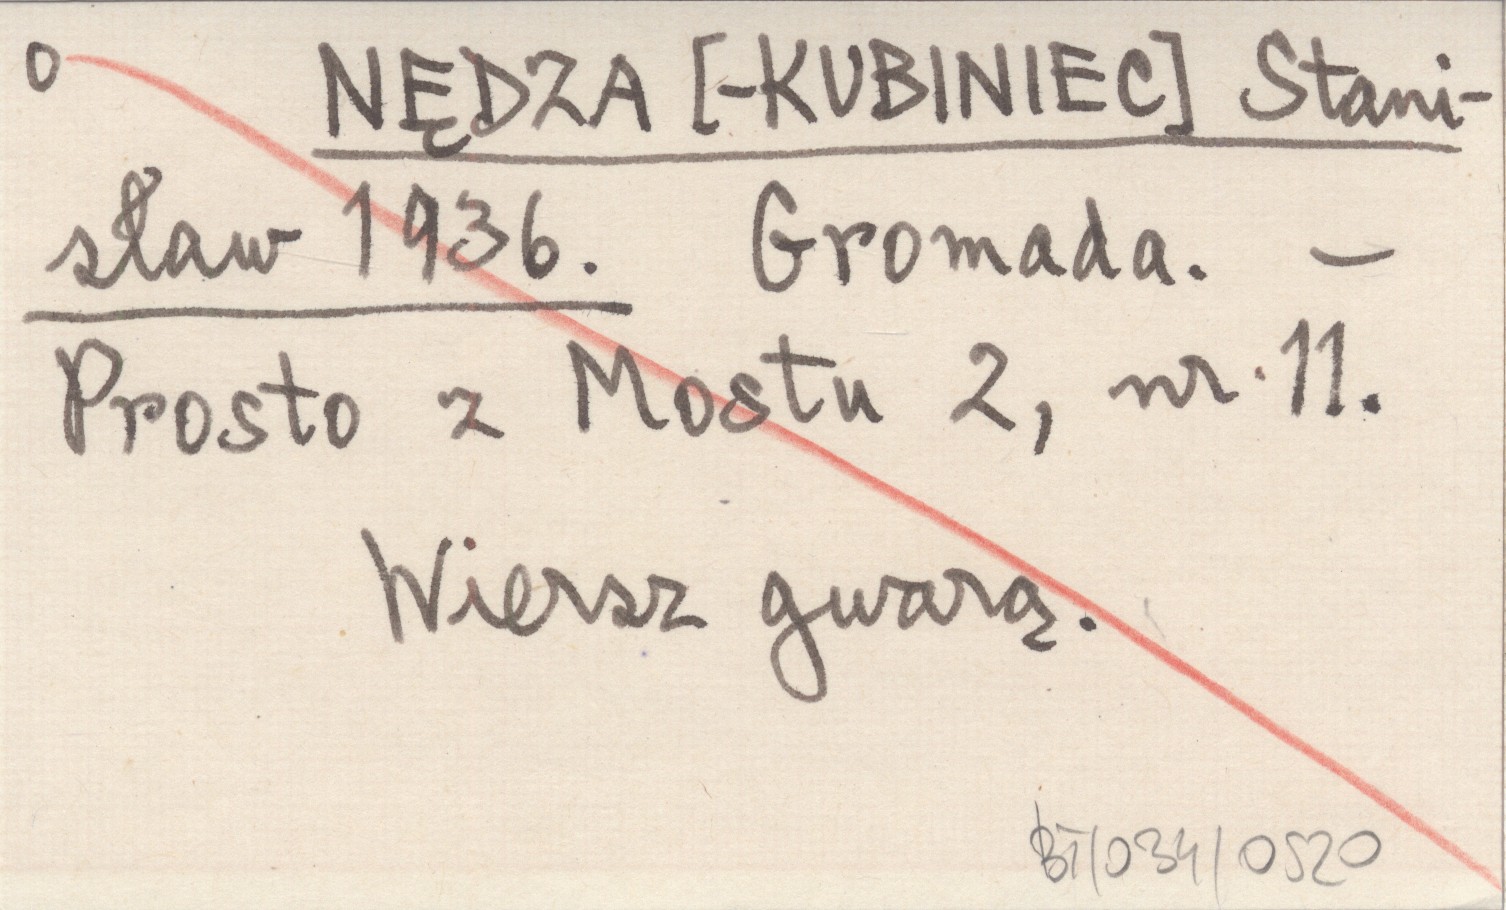 0 NĘDZA [-KUBINIEC] Stani-
sław 1936. Gromada. –
Prosto z Mostu 2, nr 11.
Wiersz gwarą.
BT/034/0520